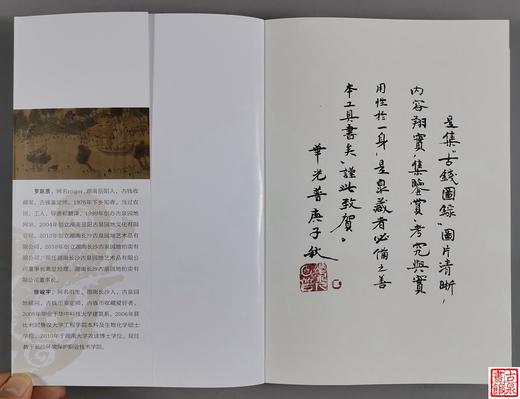 网名roger，湖南岳阳人，古钱收
藏家，古钱鉴定师。1976年下乡知青，当过农
民、工人、导游和翻译，1999年创办古泉园地
网站，2004年创立湖南岳阳古泉园地文化有限
公司，2010年创立湖南长沙古泉园地艺术品有
限公司，2018年创立湖南长沙古泉园地拍卖有
限公司，现任湖南长沙古泉园地艺术品有限公
司董事长兼总经理、湖南长沙古泉园地拍卖有
限公司董事长。
湖南长沙人，古泉园
地顾问，古钱币鉴定师，古钱币收藏爱好者。
2005年毕业于华中科技大学建筑系，2006年获
比利时鲁汶大学工程学院本科及生物化学硕士
学位，2010年于湖南大学攻读博士学位，现任
教于长沙环境保护职业技术学院。
是集"古錢圖録"圖片清晰，
內容翔實，集鑒賞、考究與實
用性於一身，是泉藏者必備之善
本工具書矣，謹此致賀。
華光普庚子秋
古泉
書館